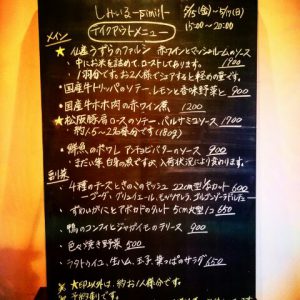 しみいる-simiil-
テイクアウトメニュー
5/15(金)~5/17(日)
15:00~20:00
メイン
★仙台うずらのファルシ 赤ワインとマッシュルームのソース
中にお米を詰めて、ローストしてあります。 1900
1羽分です。お2人様でシェアすると軽めの量です。
・国産牛トリッパのソテー、レモンと香味野菜と 900
・国産牛ホホ肉の赤ワイン煮 1200
★松阪豚肩ロースのソテー、バルサミコソース 1900
約1.5~2名様分です(180g)
・鮮魚のポワレ アンチョビバターのソース 900
まだい等 白身の魚ですが 入荷状況により変わります。
副菜
・4種のチーズときのこのキッシュ 22cm型 1/8カット 600
ゴーダ、グリュイエール、モッツァレラ、ゴルゴンゾーラドルチェ
・ずわいがにとアボカドのタルト 5cm丸型1コ 650
・鴨のコンフィとジャガイモのテリーヌ 900
・色々焼き野菜 500
・ラタトゥイユ、生ハム、玉子、葉っぱのサラダ 650
※★印以外は、約お1人様分です。